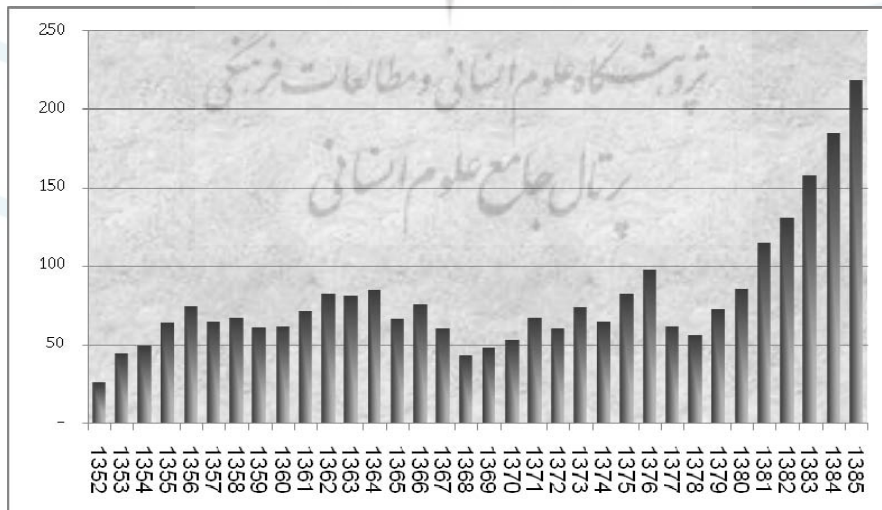 250
200
150
100
50
–
پژوهشگاه علوم انسانی و مطالعات فرهنگی
پرتال جامع علوم انسانی
1352 1353 1354 1355 1356 1357 1358 1359 1360 1361 1362 1363 1364 1365 1366 1367 1368 1369 1370 1371 1372 1373 1374 1375 1376 1377 1378 1379 1380 1381 1382 1383 1384 1385